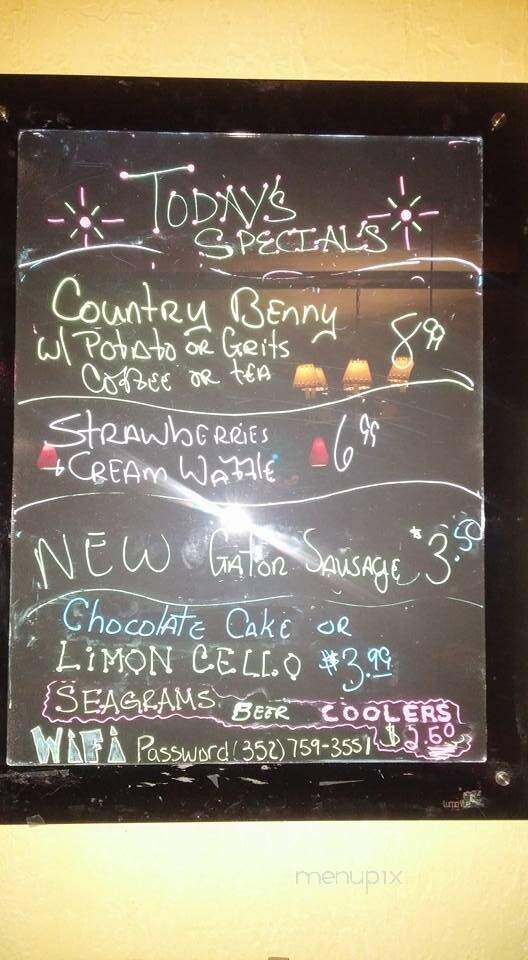 TODAY'S
SPECIAL'S
Country Benny
w/ Potato or Grits 8.99
Coffee or tea
Strawberries 6.99
+ Cream Waffle
NEW Gator Sausage $3.50
Chocolate Cake or
LIMON CELLO $3.99
SEAGRAMS BEER COOLERS
$2.50
WiFi Password (352) 759-3551
menupix